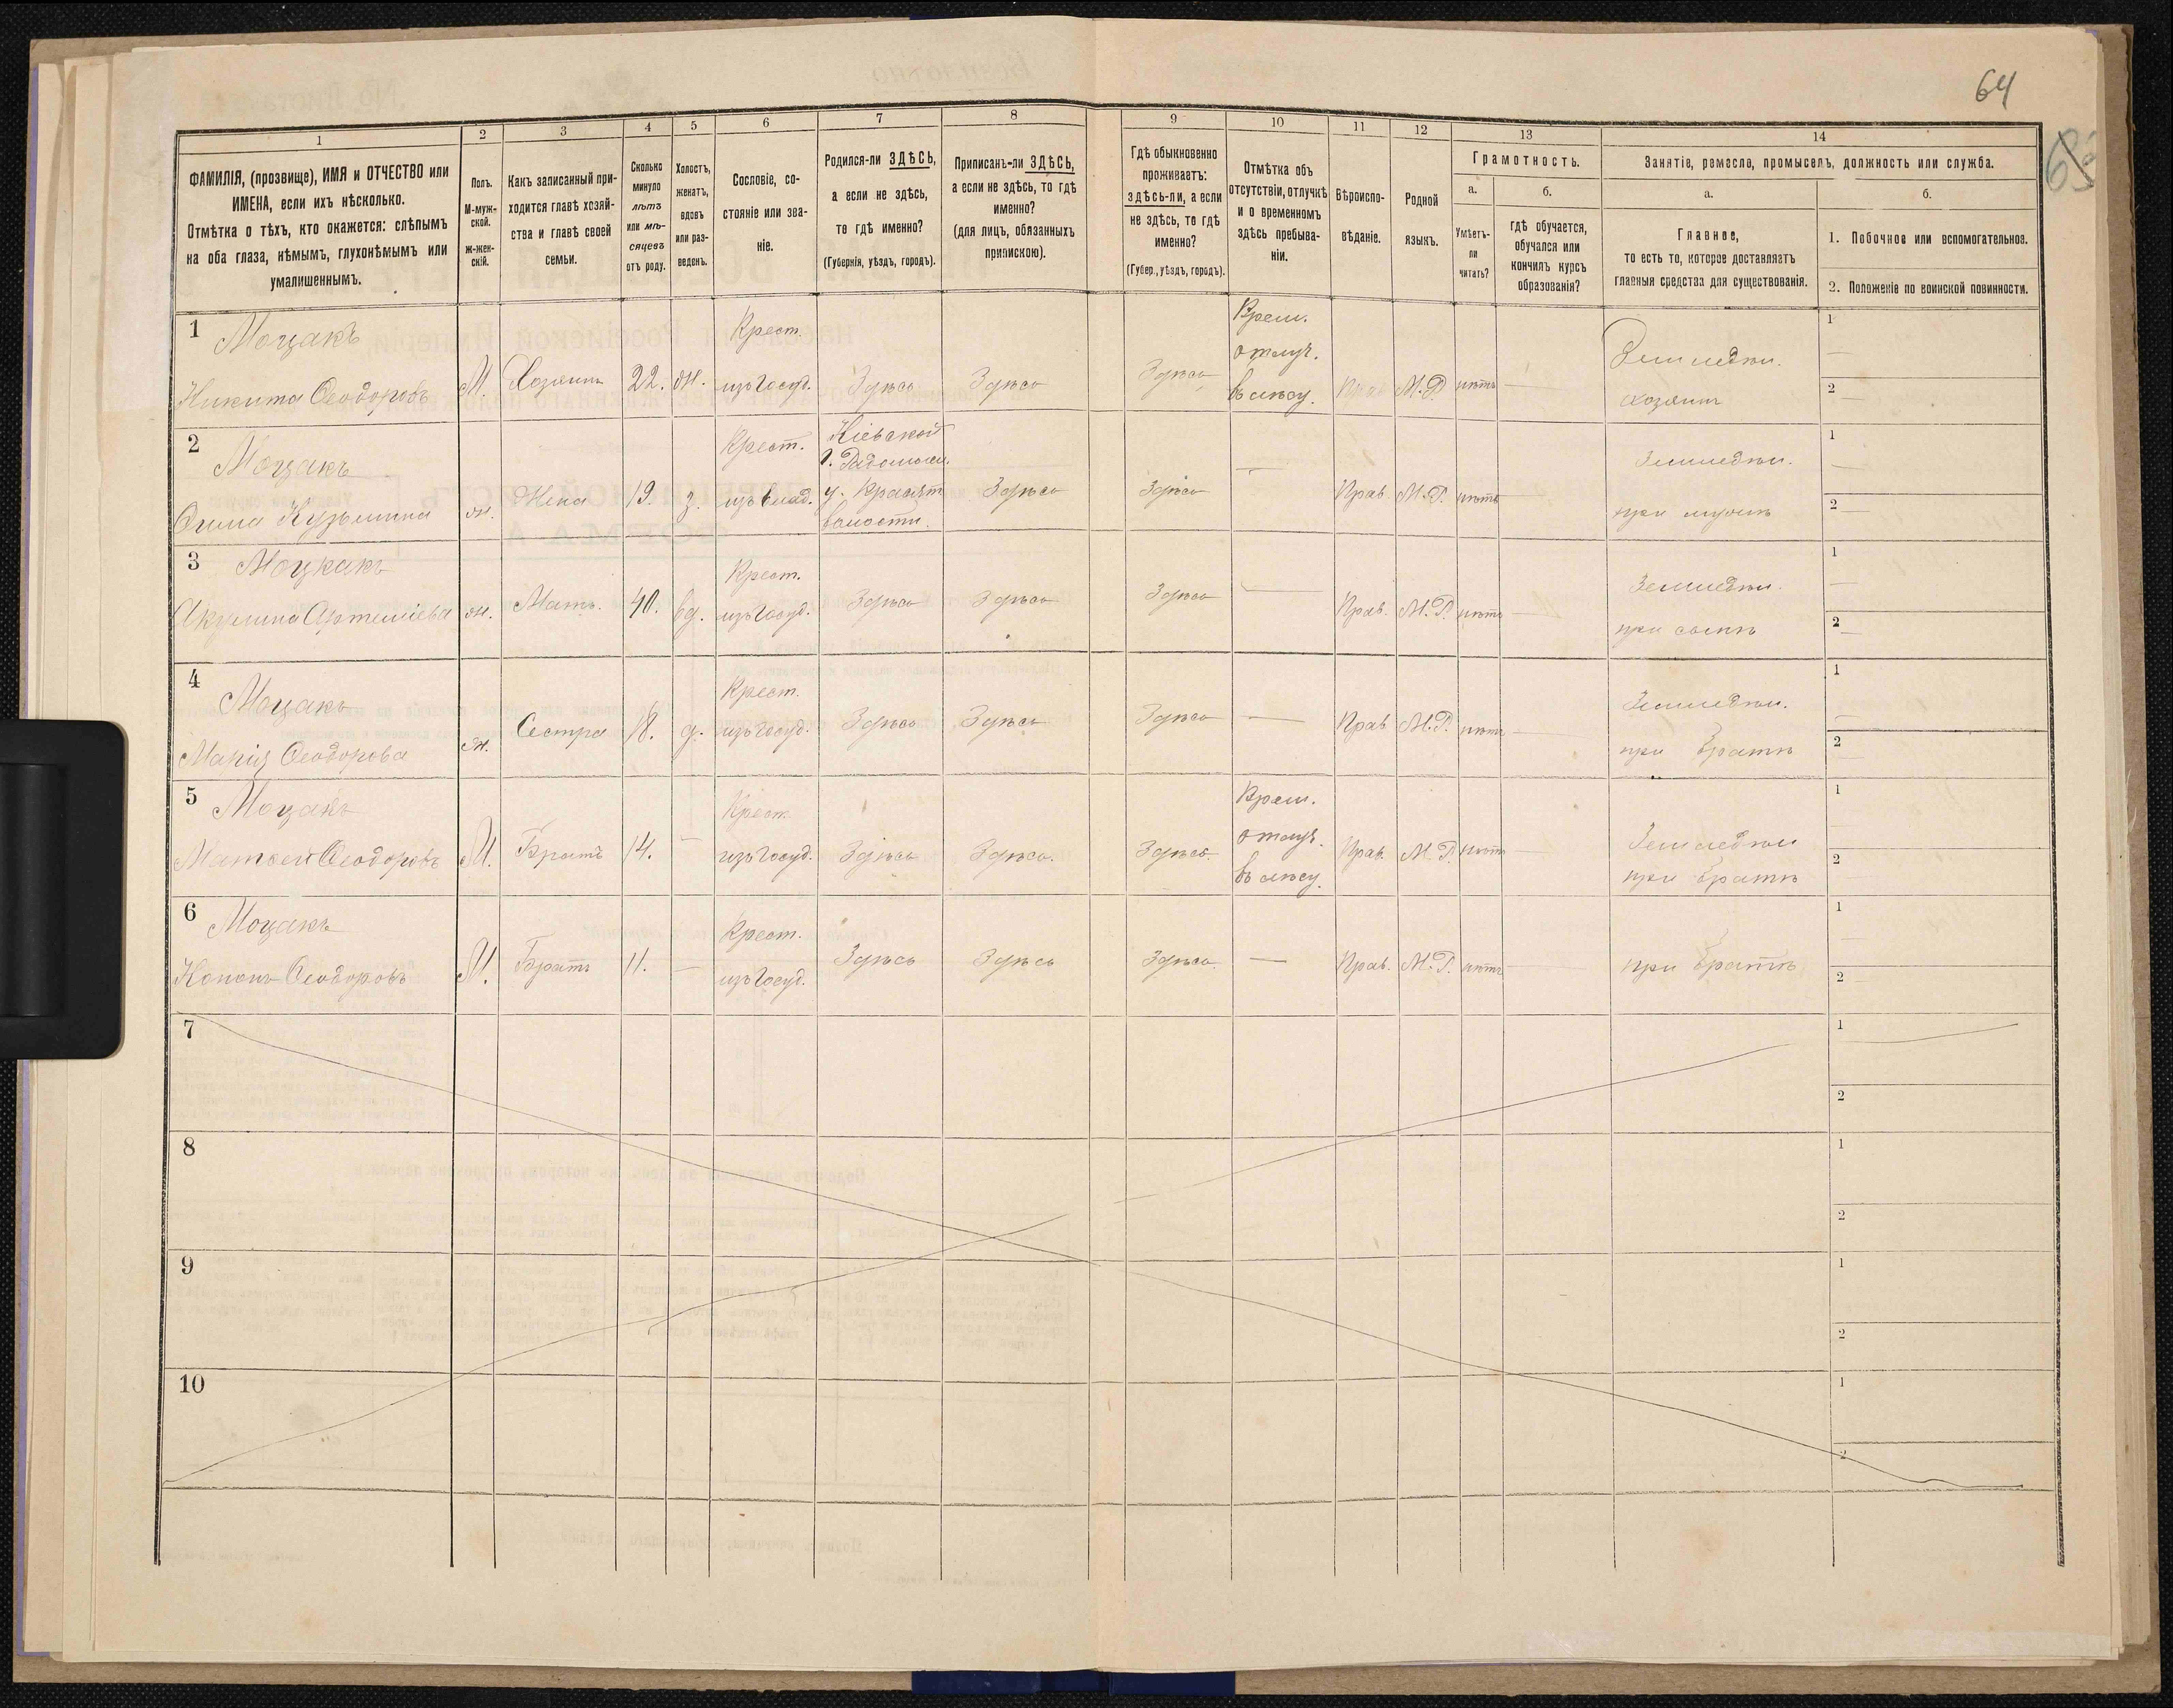 64
1
2
3
4
5
6
7
8
9
10
11
12
13
14
ФАМИЛІЯ, (прозвище), ИМЯ и ОТЧЕСТВО или
ИМЕНА, если ихъ нѣсколько.
Отмѣтка о тѣхъ, кто окажется: слѣпымъ
на оба глаза, нѣмымъ, глухонѣмымъ или
умалишеннымъ.
Полъ.
М-муж-
ской.
ж-жен-
скій.
Какъ записанный при-
ходится главѣ хозяй-
ства и главѣ своей
семьи.
Сколько
минуло
лѣтъ
или мѣ-
сяцевъ
отъ роду.
Холостъ,
женатъ,
вдовъ
или раз-
веденъ.
Сословіе, со-
стояніе или зва-
ніе.
Родился-ли ЗДѢСЬ,
а если не здѣсь,
то гдѣ именно?
(Губернія, уѣздъ, городъ).
Приписанъ-ли ЗДѢСЬ,
а если не здѣсь, то гдѣ
именно?
(для лицъ, обязанныхъ
припискою).
Гдѣ обыкновенно
проживаетъ:
здѣсь-ли, а если
не здѣсь, то гдѣ
именно?
(Губер., уѣздъ, городъ).
Отмѣтка объ
отсутствіи, отлучкѣ
и о временномъ
здѣсь пребыва-
ніи.
Вѣроиспо-
вѣданіе.
Родной
языкъ.
Грамотность.
а.
Умѣетъ-
ли
читать?
б.
гдѣ обучается,
обучался или
кончилъ курсъ
образованія?
Занятіе, ремесло, промыселъ, должность или служба.
а.
Главное,
то есть то, которое доставляетъ
главныя средства для существованія.
б.
1. Побочное или вспомогательное.
2. Положеніе по воинской повинности.
1 Моцакъ
Никита Ѳеодоровъ М. Хозяинъ 22. ж. Крест.
изъ госуд. Здѣсь Здѣсь Здѣсь Врем.
отлуч.
въ лѣсу. Прав М.Р. нѣтъ — Земледѣл.
хозяинъ
1 —
2 —
2 Моцакъ
Кузьмина ж. Жена 19. з. Крест.
изъ влад. Кіевской
г. Радомысл.
у.
волости. Здѣсь Здѣсь — Прав. М.Р. нѣтъ Земледѣл.
при мужѣ
1 —
2 —
3 Моцкакъ
Акулина Артеміева ж. Мать. 40. вд. Крест.
изъ госуд. Здѣсь Здѣсь Здѣсь — Прав. М.Р. нѣтъ — Земледѣл.
при сынѣ
1 —
2 —
4 Моцакъ
Марія Ѳеодорова ж. Сестра 18. д. Крест.
изъ госуд. Здѣсь Здѣсь Здѣсь — Прав М.Р. нѣтъ — Земледѣл.
при братѣ
1 —
2 —
5 Моцакъ
Матвей Ѳеодоровъ М. Братъ 14. — Крест.
изъ госуд. Здѣсь Здѣсь. Здѣсь. Врем.
отлуч.
въ лѣсу. Прав. М.Р. нѣтъ — Земледѣл
при братѣ
1 —
2 —
6 Моцакъ
Кононъ Ѳеодоровъ М. Братъ 11. — Крест.
изъ госуд. Здѣсь Здѣсь Здѣсь — Прав. М.Р. нѣтъ — при братѣ
1 —
2 —
7
1
2
8
1
2
9
1
2
10
1
2